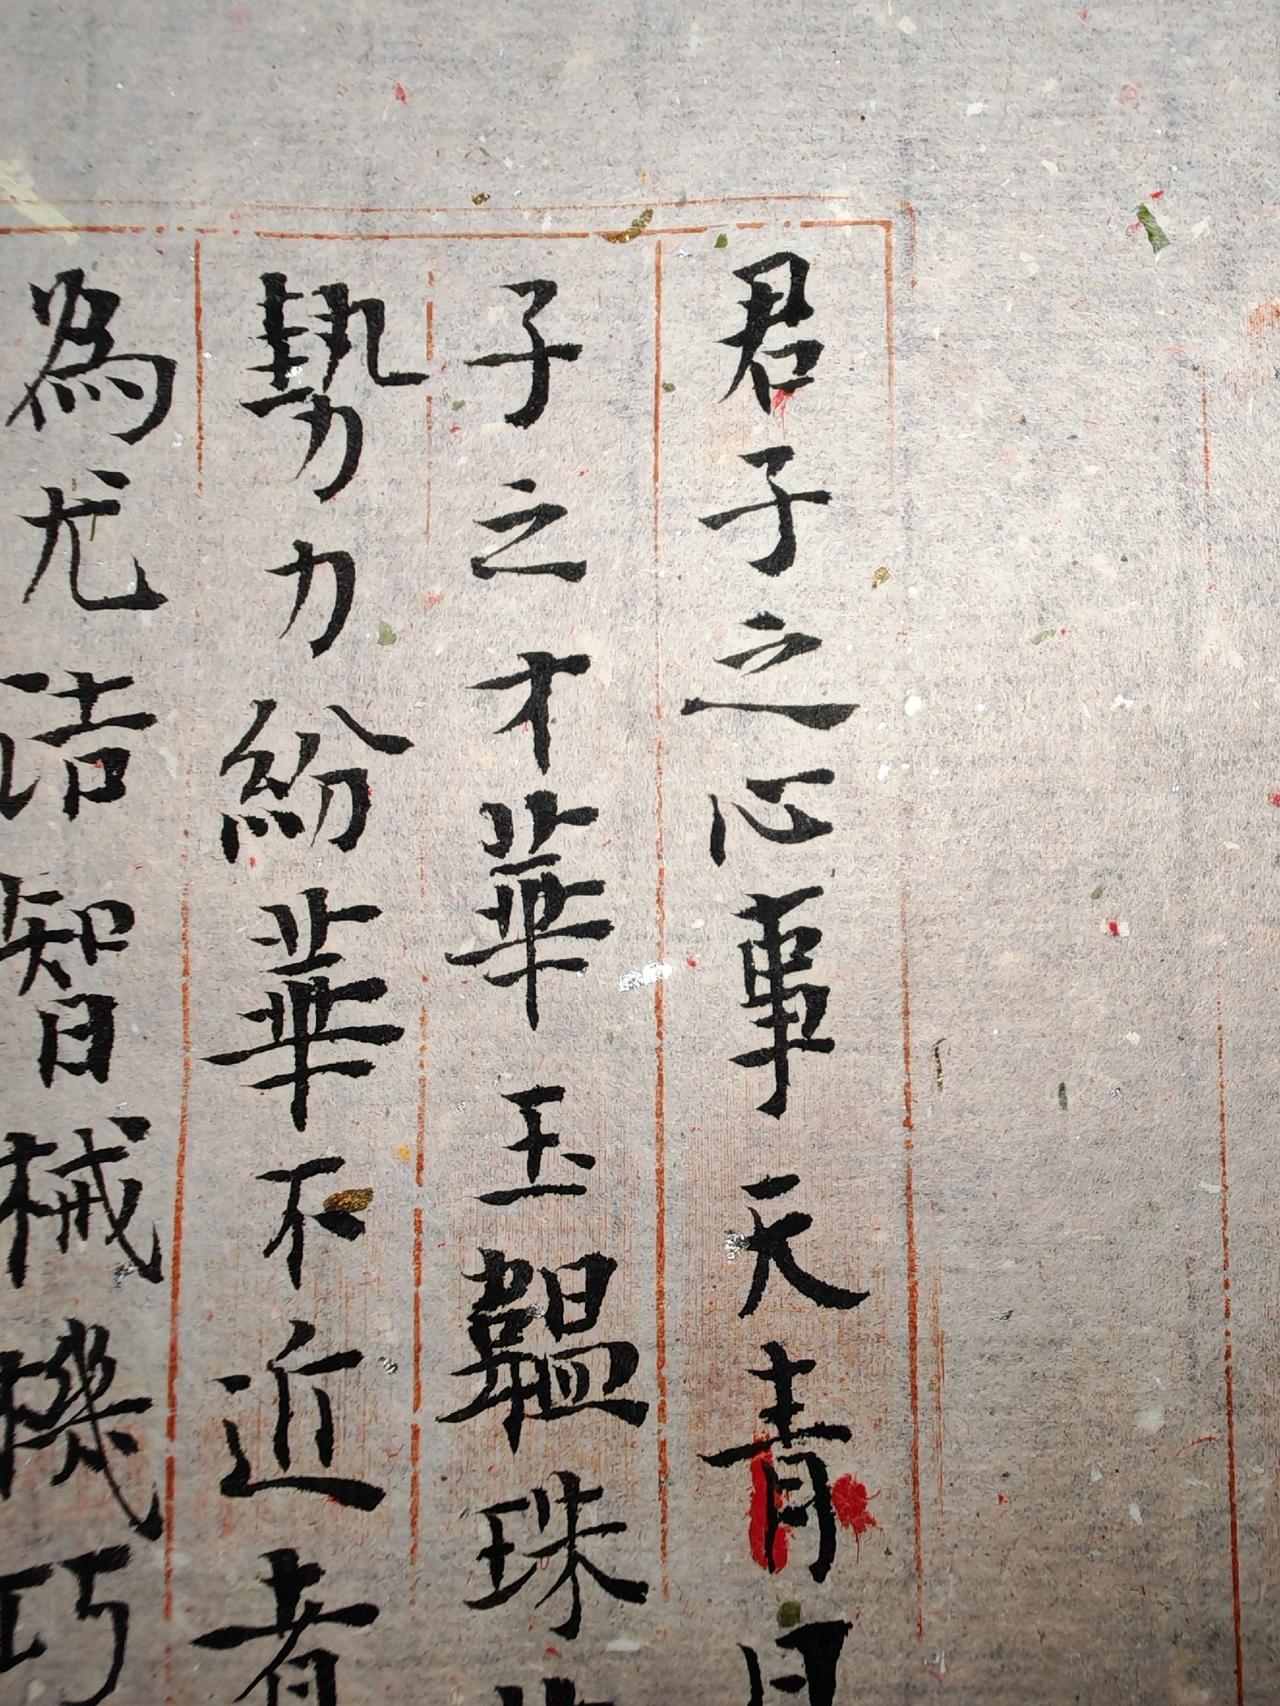 君子之心事天青日
子之才華玉韞珠
勢力紛華不近者
為尤洁智械機巧